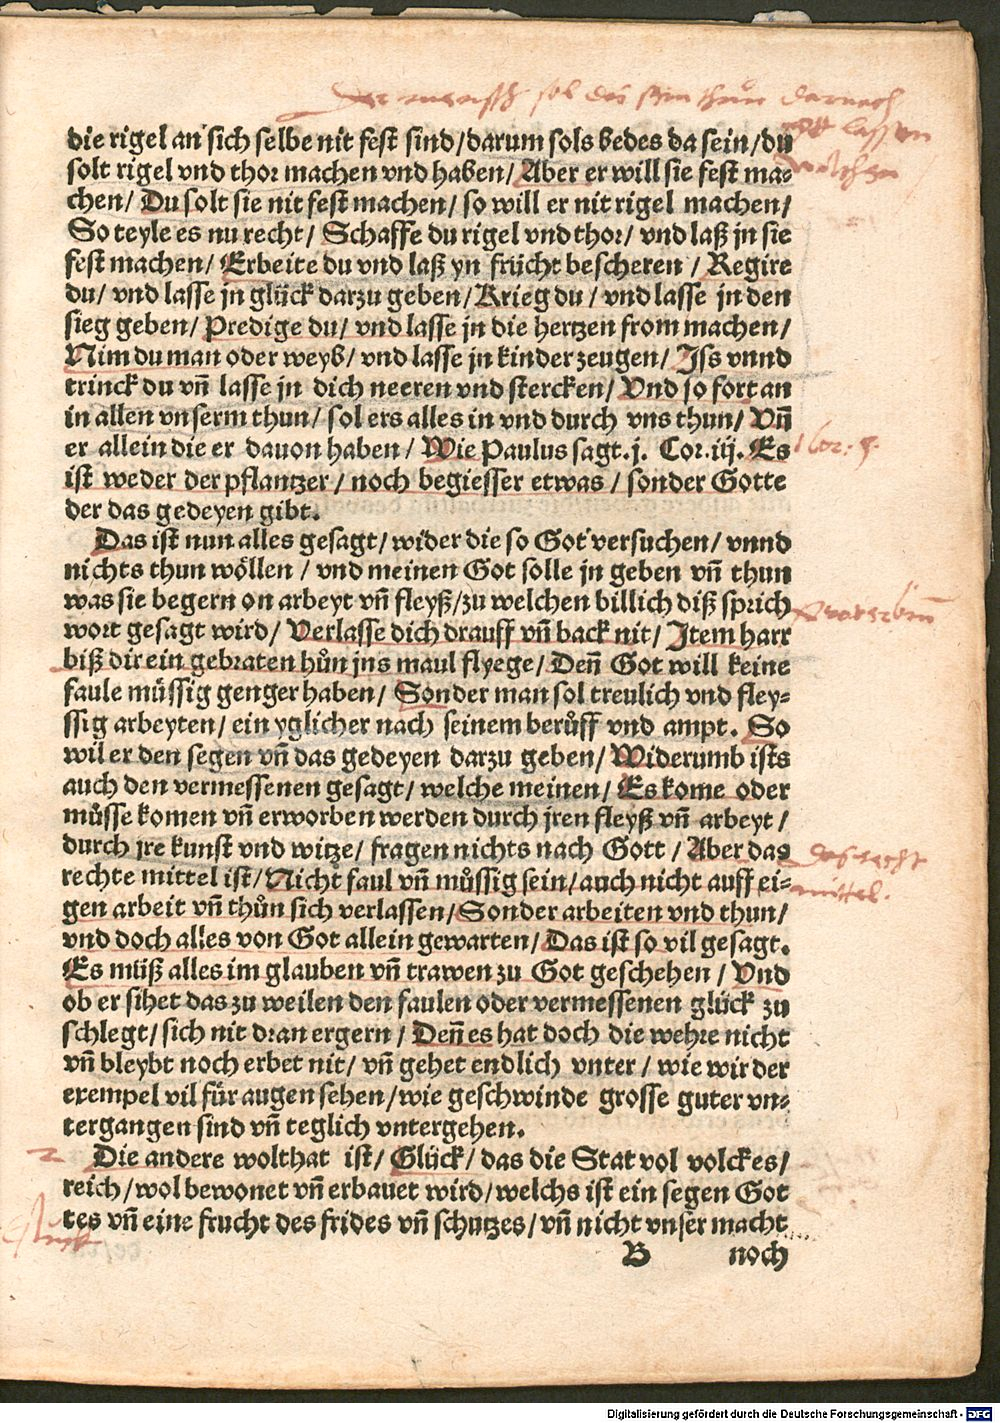 Der mensch sol das sein thun darnach
gott lassen
die rigel an sich selbe nit fest sind/darum sols bedes da sein/du
solt rigel vnd thor machen vnd haben/ Aber er will sie fest ma-
chen/ Du solt sie nit fest machen/ so will er nit rigel machen/
So teyle es nu recht/ Schaffe du rigel vnd thor/ vnd laß jn sie
fest machen/ Erbeite du vnd laß yn frücht bescheren / Regire
du/ vnd lasse jn glück darzu geben/ Krieg du / vnd lasse jn den
sieg geben/ Predige du/ vnd lasse jn die hertzen from machen/
Nim du man oder weyb/ vnd lasse jn kinder zeugen/ Iss vnnd
trinck du vñ lasse jn dich neeren vnd stercken/ Vnd so fort an
in allen vnserm thun/ sol ers alles in vnd durch vns thun/ Vñ
er allein die er dauon haben/ Wie Paulus sagt. j. Cor. iij. Es
1 Cor: 3.
ist weder der pflantzer / noch begiesser etwas / sonder Gotte
der das gedeyen gibt.
Das ist nun alles gesagt/ wider die so Got versuchen/ vnnd
nichts thun wöllen / vnd meinen Got solle jn geben vñ thun
was sie begern on arbeyt vñ fleyß/zu welchen billich diß sprich
wort gesagt wird/ Verlasse dich drauff vñ back nit/ Item harr
biß dir ein gebraten hůn jns maul flyege/ Deñ Got will keine
faule müssig genger haben/ Sonder man sol treulich vnd fley-
ssig arbeyten/ ein yglicher nach seinem berůff vnd ampt. So
wil er den segen vñ das gedeyen darzu geben/ Widerumb ists
auch den vermessenen gesagt/ welche meinen/ Es kome oder
můsse komen vñ erworben werden durch jren fleyß vñ arbeyt/
durch jre kunst vnd witze/ fragen nichts nach Gott / Aber das
Das recht
mittel.
rechte mittel ist/ Nicht faul vñ můssig sein/auch nicht auff ei-
gen arbeit vñ thůn sich verlassen/ Sonder arbeiten vnd thun/
vnd doch alles von Got allein gewarten/ Das ist so vil gesagt.
Es müß alles im glauben vñ trawen zu Got geschehen / Vnd
ob er sihet das zu weilen den faulen oder vermessenen glück zu
schlegt/ sich nit dran ergern / Deñ es hat doch die wehre nicht
vñ bleybt noch erbet nit/ vñ gehet endlich vnter / wie wir der
exempel vil für augen sehen/wie geschwinde grosse guter vn-
tergangen sind vñ teglich vntergehen.
2
Die andere wolthat ist/ Glück/ das die Stat vol volckes/
reich/ wol bewonet vñ erbauet wird/welchs ist ein segen Got
tes vñ eine frucht des frides vñ schutzes/ vñ nicht vnser macht
B noch
Digitalisierung gefördert durch die Deutsche Forschungsgemeinschaft - DFG